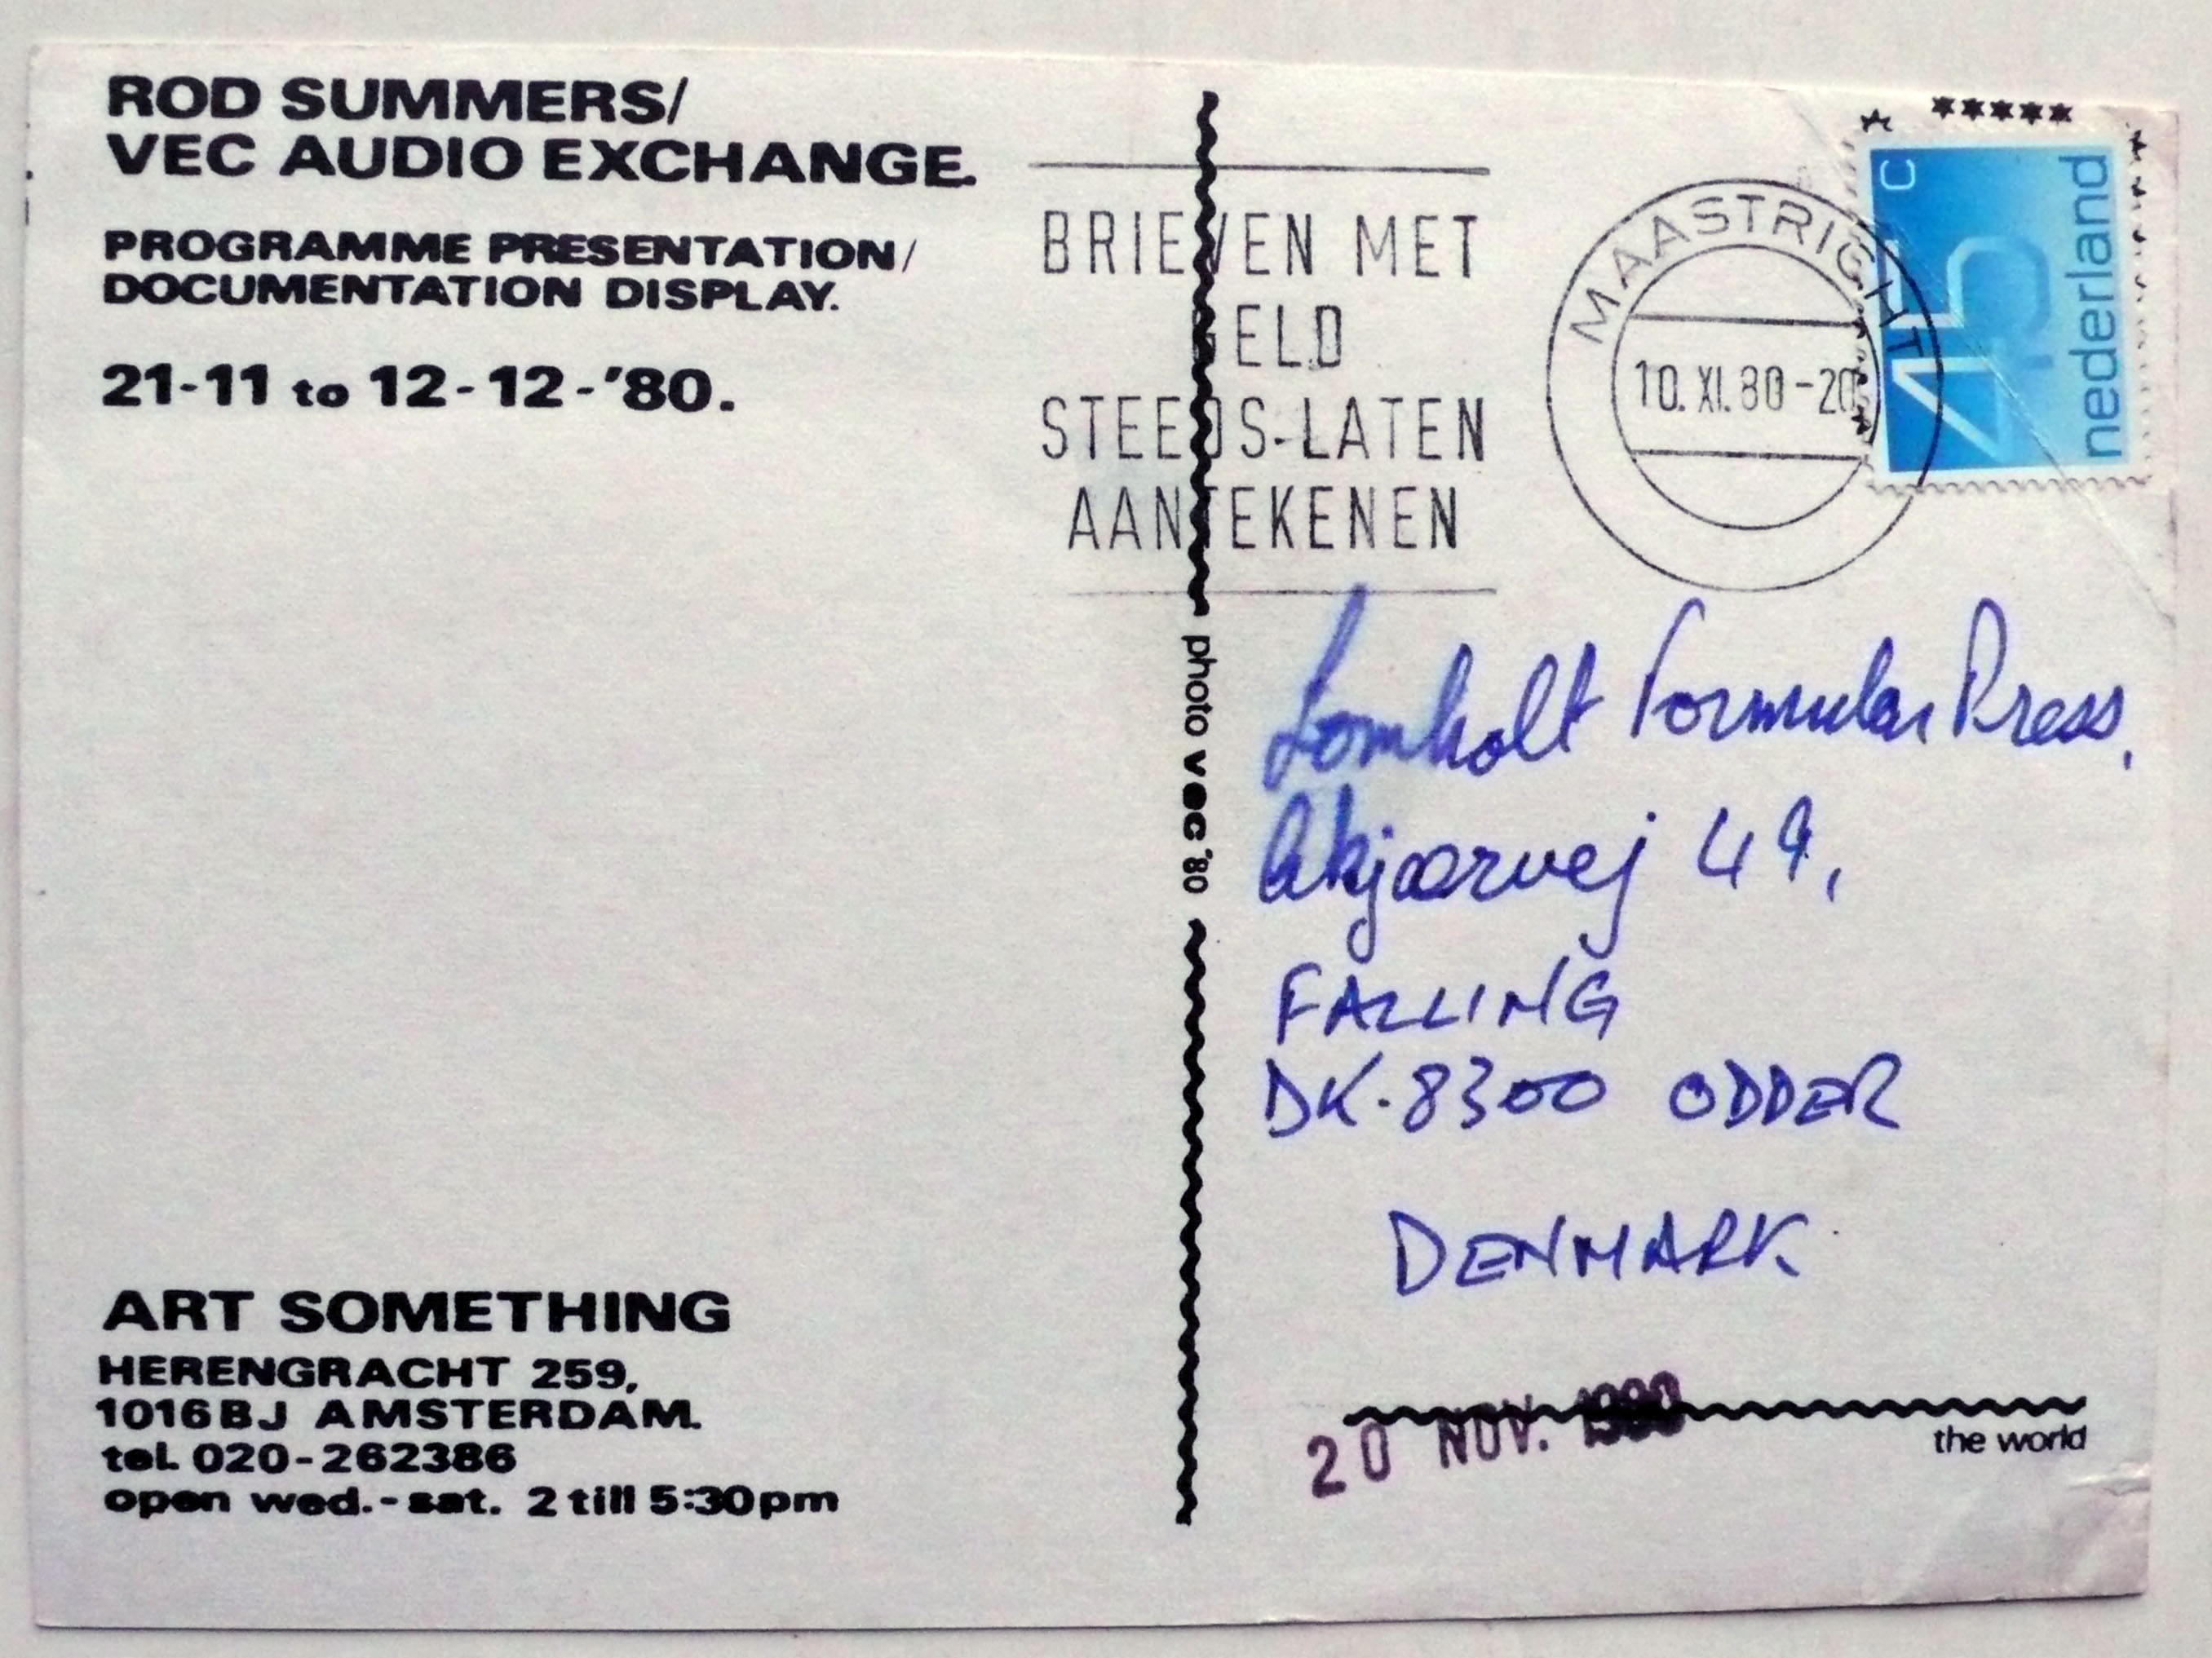 ROD SUMMERS/
VEC AUDIO EXCHANGE.
PROGRAMME PRESENTATION/
DOCUMENTATION DISPLAY.
21-11 to 12-12-'80.
ART SOMETHING
HERENGRACHT 259,
1016BJ AMSTERDAM.
tel. 020-262386
open wed.-sat. 2 till 5:30pm
photo vec '80
BRIEVEN MET
GELD
STEEDS-LATEN
AANTEKENEN
MAASTRICHT
10.XI.80-20
45 c
nederland
Lomholt Formular Press,
Akjærvej 49,
FALLING
DK.8300 ODDER
DENMARK
20 NOV. 1980
the world